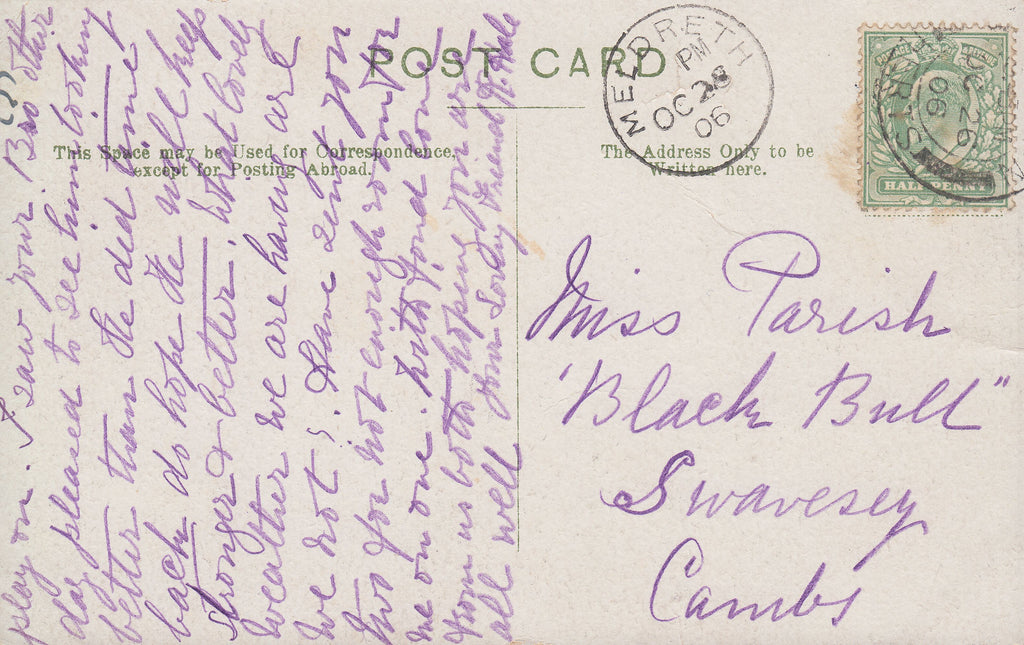 POST CARD
This Space may be Used for Correspondence.
except for Posting Abroad.
The Address Only to be
Written here.
MELDRETH
PM
OC 28
06
06
HALFPENNY
Miss Parish
"Black Bull"
Swavesey
Cambs
play on. I saw your Brother
day pleased to see him looking
better than he did time
back do hope he will keep
stronger & better. What lovely
weather we are having are
we not? Have sent you
two for not enough room for
me on one. With fond love
from us both hoping you are
all well
Your Loving Friend